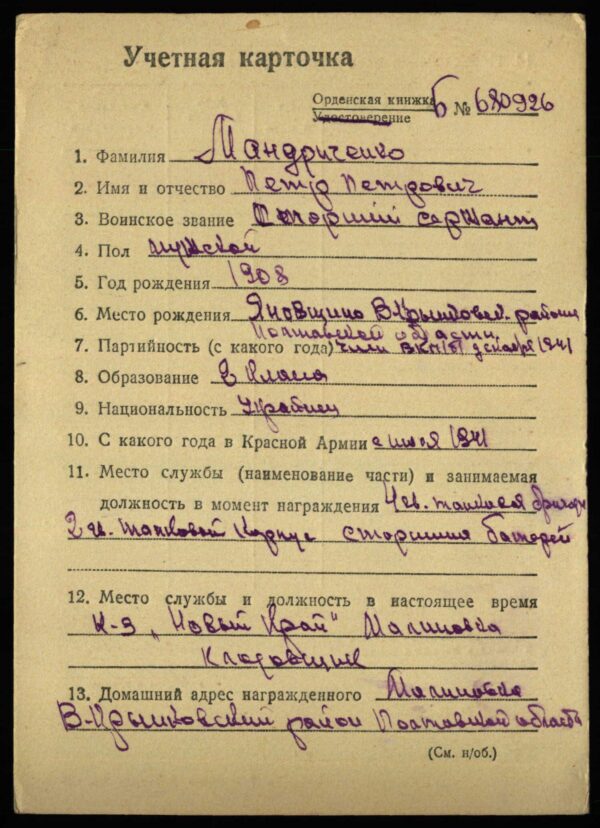 Учетная карточка
Орденская книжка Б № 680926
Удостоверение
1. Фамилия Мандриченко
2. Имя и отчество Петр Петрович
3. Воинское звание Старший сержант
4. Пол мужской
5. Год рождения 1908
6. Место рождения Яновщина В-Крынковск. района
Полтавской области
7. Партийность (с какого года) член ВКП(б) декабря 1941
8. Образование 2 класса
9. Национальность Украинец
10. С какого года в Красной Армии с июля 1941
11. Место службы (наименование части) и занимаемая
должность в момент награждения 4 гв. танковая бригада
2 гв. танковый корпус старшина батареи
12. Место службы и должность в настоящее время
к-з „Новый Край" Малиновка
кладовщик
13. Домашний адрес награжденного Малиновка
В-Крынковский район Полтавской области
(См. н/об.)